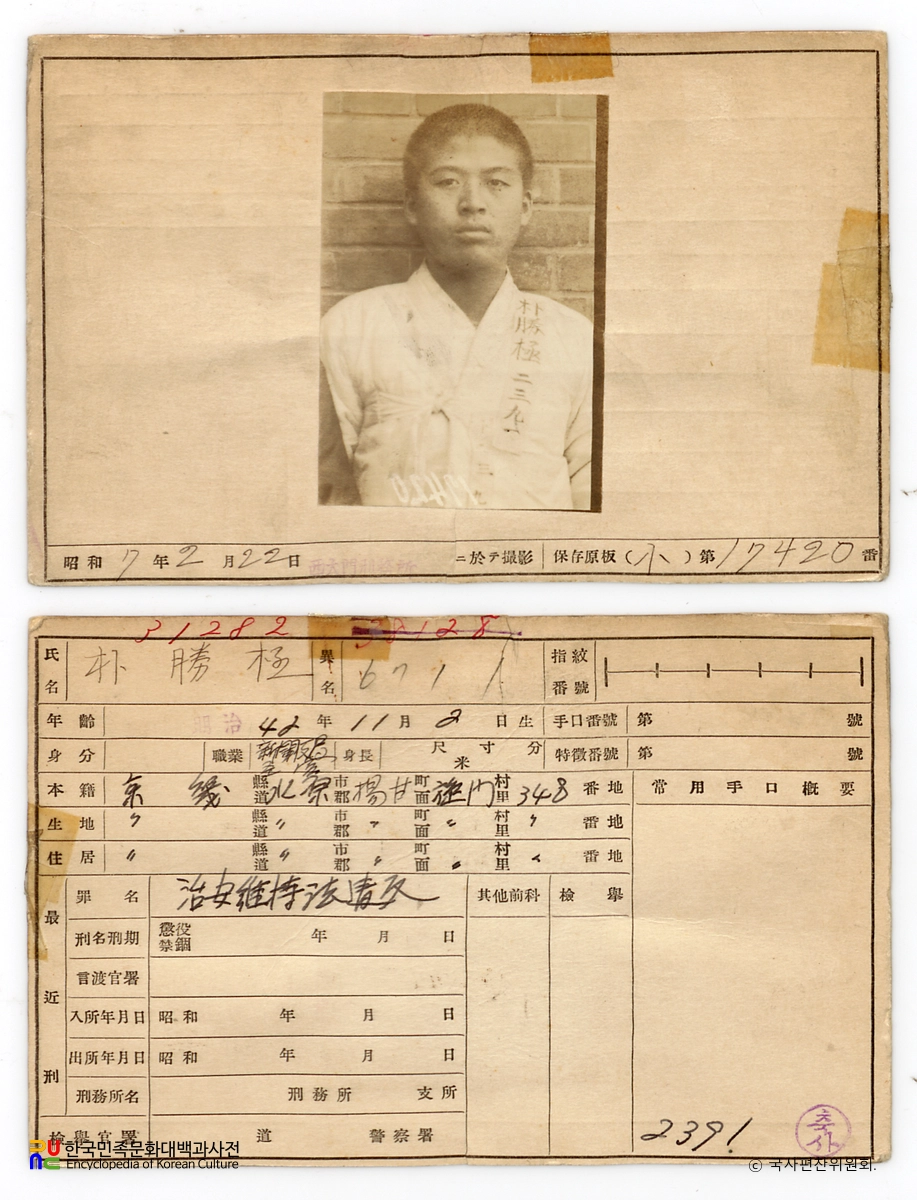 朴勝極 二三九一
17420
昭和 7 年 2 月 22 日 西大門刑務所 ニ於テ撮影 保存原板 (小) 第 17420 番
31282 38128
氏名 朴勝極 異名 6711 指紋番號
年齡 明治 42 年 11 月 2 日生 手口番號 第 號
身分 職業 身長 尺 寸 分 米 特徵番號 第 號
本籍 京畿 縣道 水原 市郡 楊甘 町面 村里 348 番地 常用手口概要
生地 〃 縣道 〃 市郡 〃 町面 〃 村里 〃 番地
住居 〃 縣道 〃 市郡 〃 町面 〃 村里 〃 番地
最近刑
罪名 治安維持法違反 其他前科 檢擧
刑名刑期 懲役 禁錮 年 月 日
言渡官署
入所年月日 昭和 年 月 日
出所年月日 昭和 年 月 日
刑務所名 刑務所 支所
檢擧官署 道 警察署
2391
축사
한국민족문화대백과사전
Encyclopedia of Korean Culture
© 국사편찬위원회.